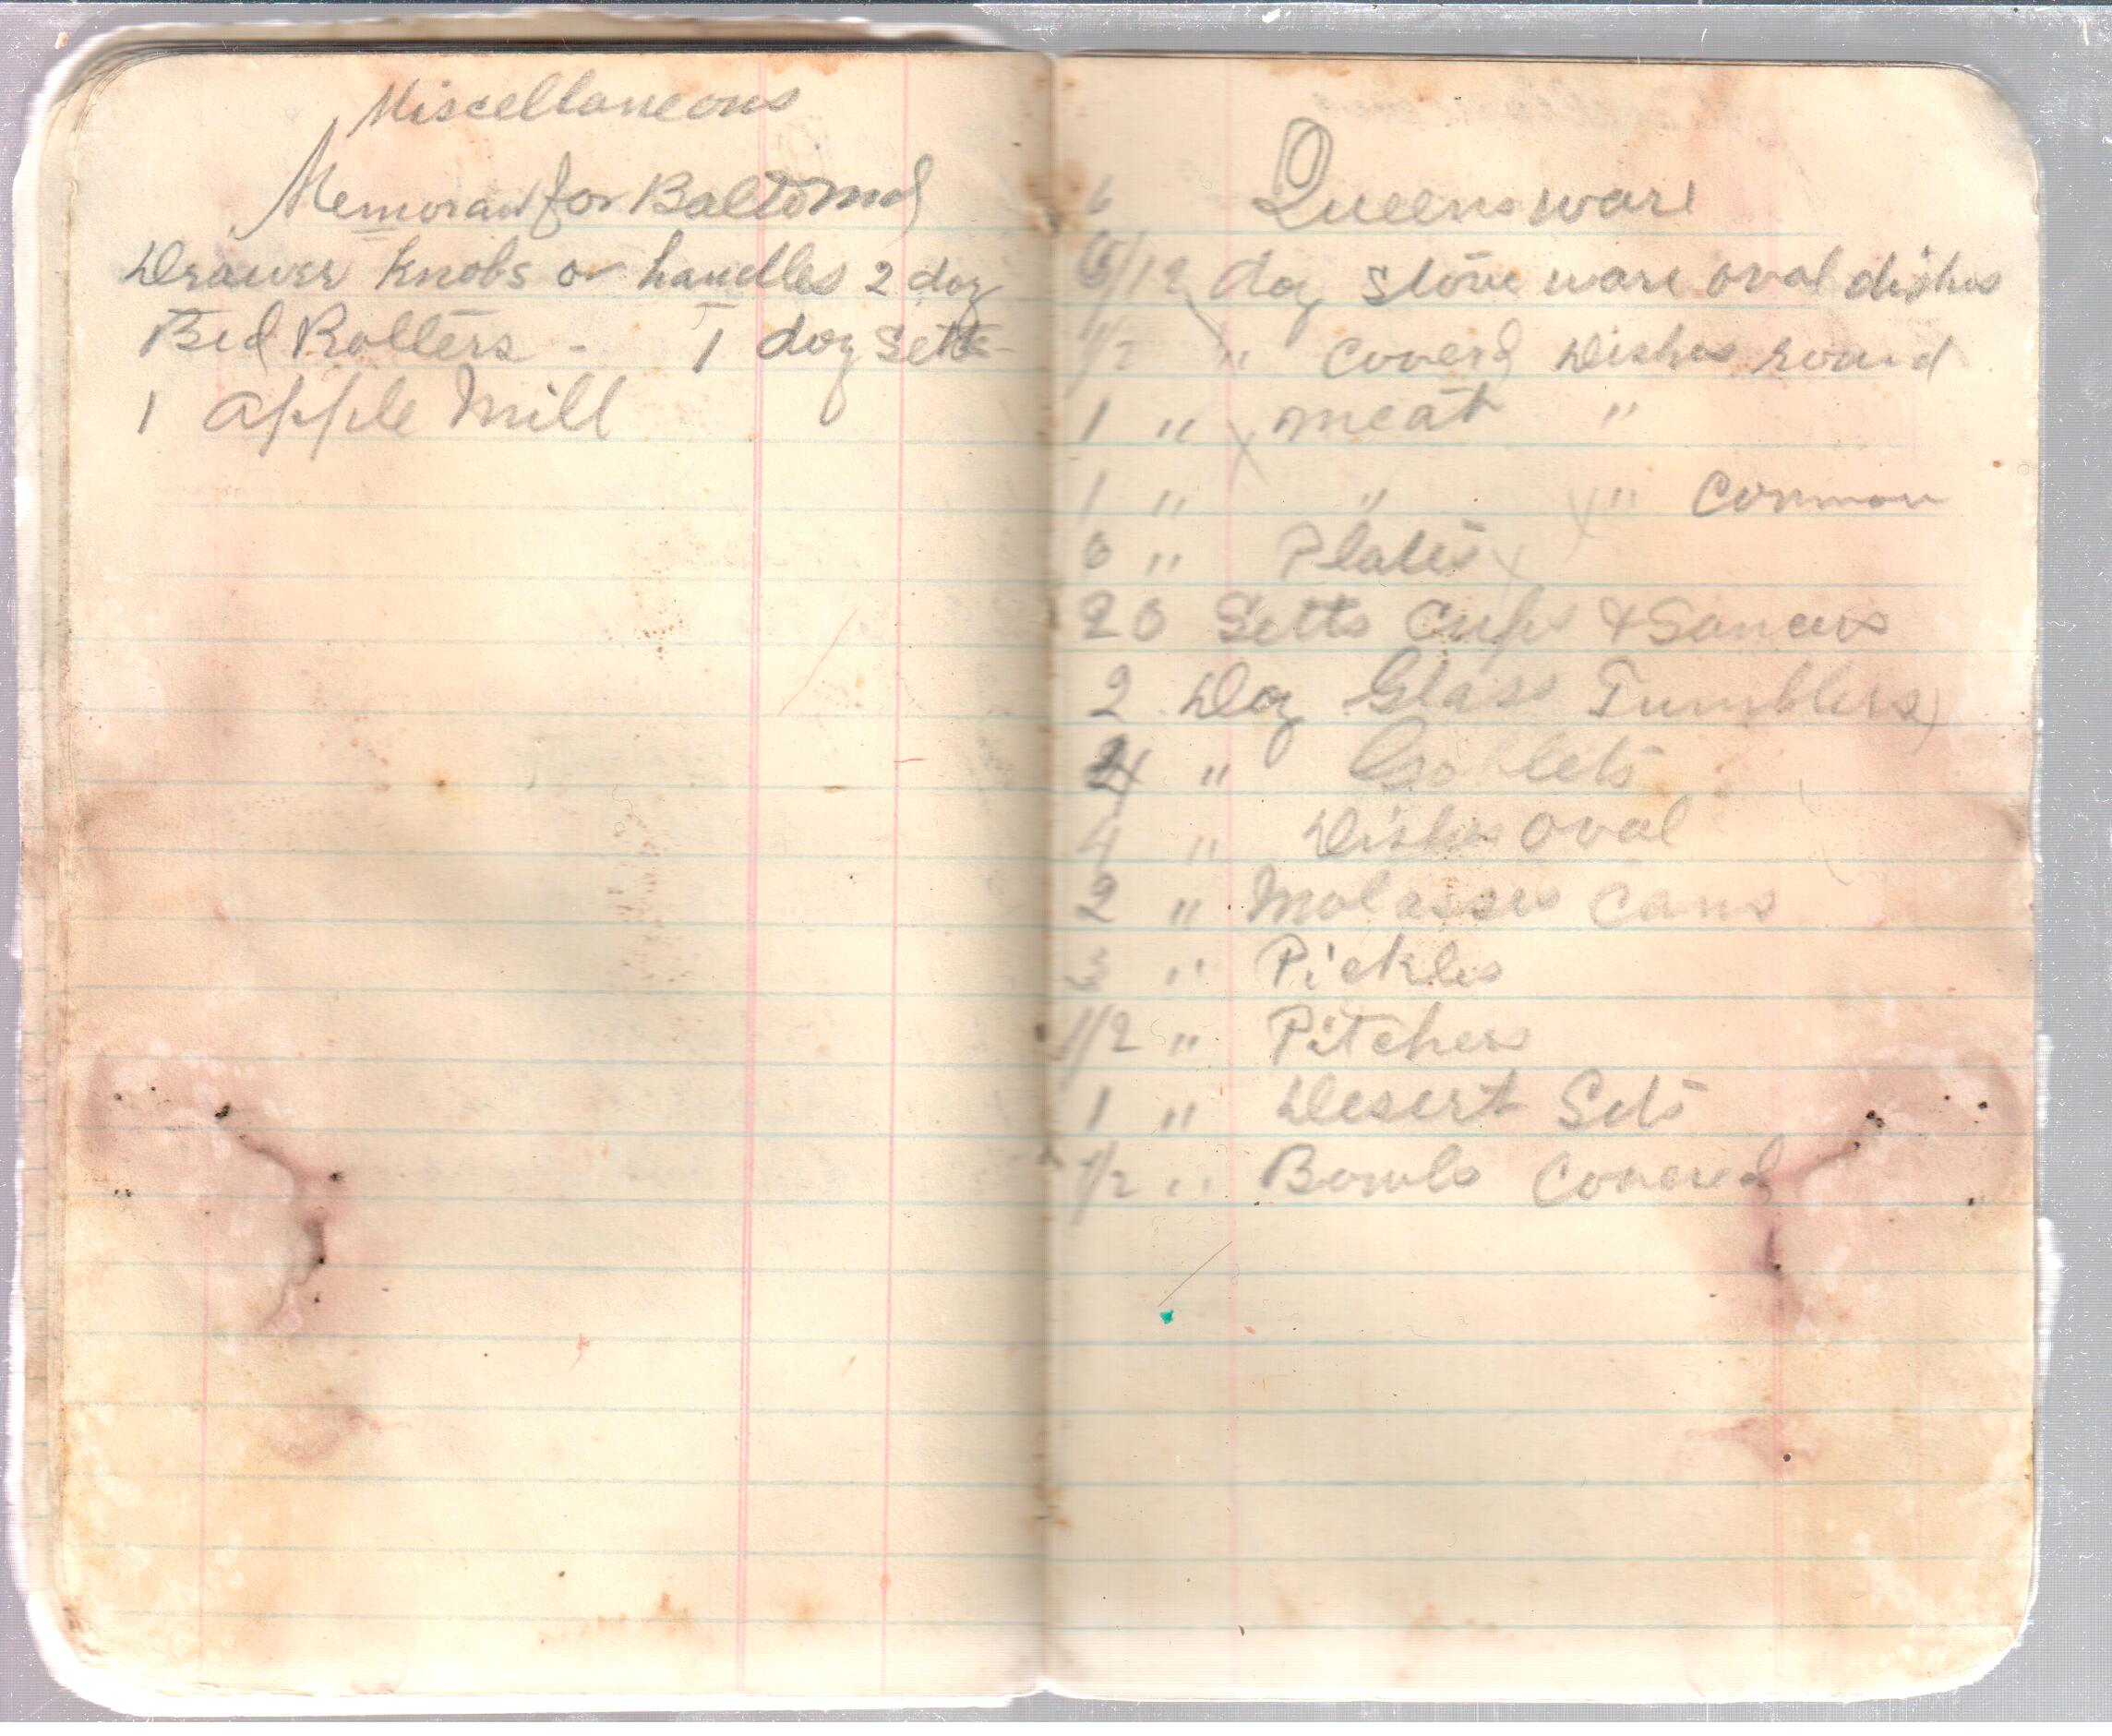 Miscellaneous
Memoran for Balto Md
Drawer Knobs or handles 2 doz
Bed Rollers - 1 doz Setts
1 apple Mill
6 Queensware
6/12 doz Stone ware oval dishes
1/2 " Coverd Dishes round
1 " x meat "
1 " " x " Common
6 " Plates x
20 Setts Cups & Saucers
2 Doz Glass Tumblers
4 " Goblets
4 " Dishes oval
2 " Molasses Cans
3 " Pickles
1/2 " Pitchers
1 " Desert Sets
1/2 " Bowls Covered